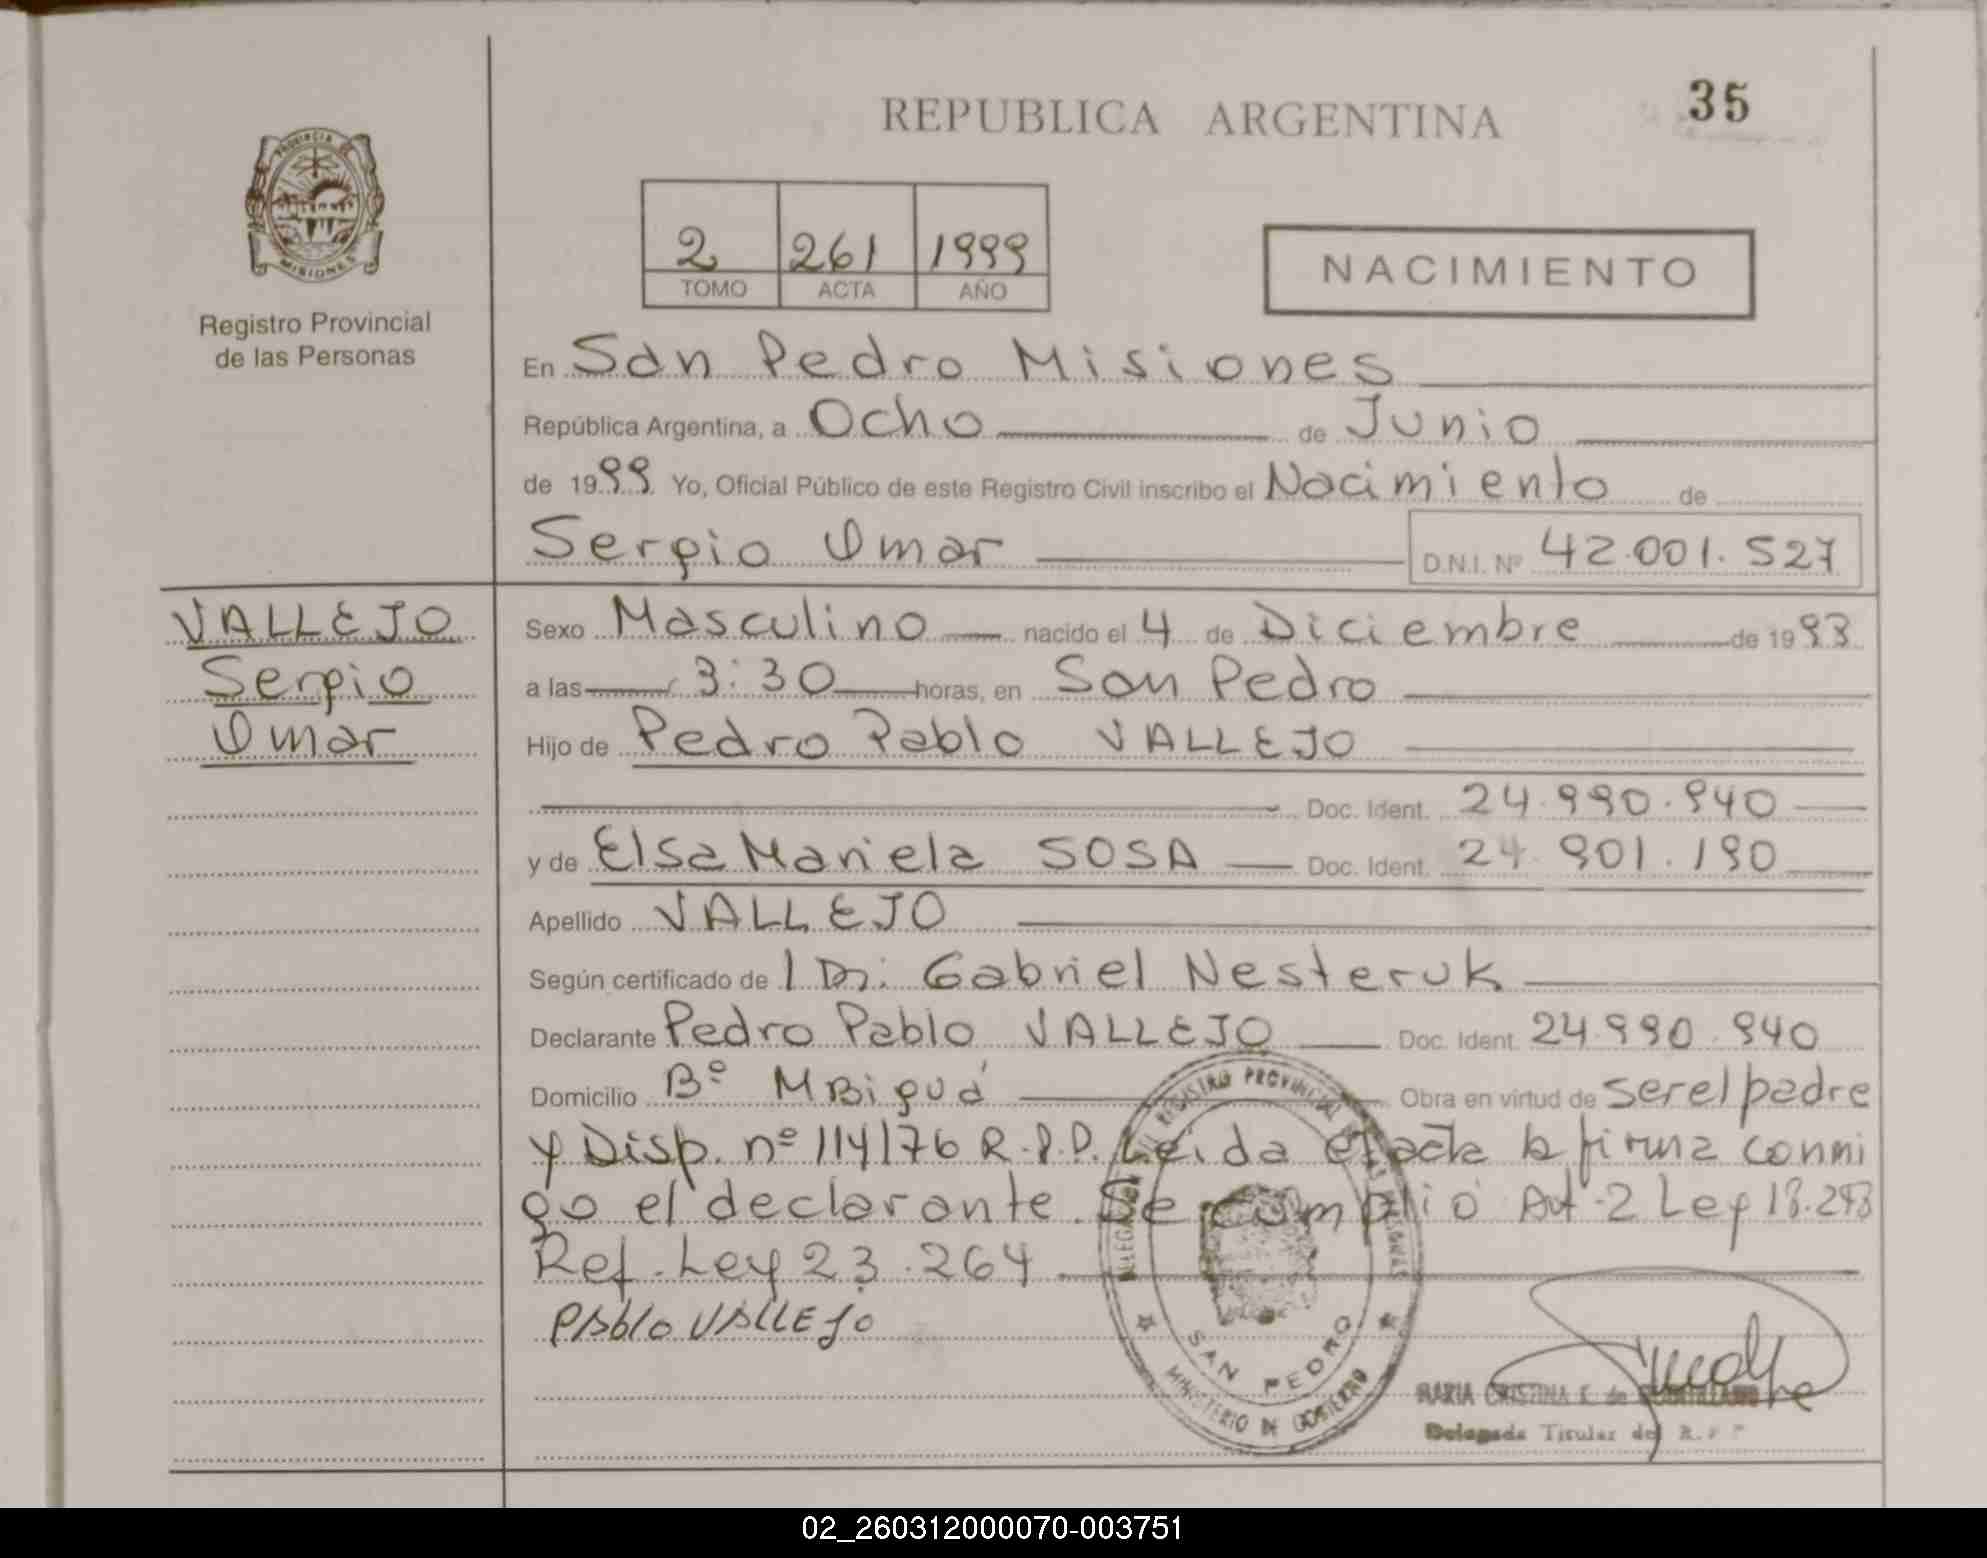 REPUBLICA ARGENTINA
35
PROVINCIA DE
MISIONES
Registro Provincial
de las Personas
2 261 1999
TOMO ACTA AÑO
NACIMIENTO
En San Pedro Misiones
República Argentina, a Ocho de Junio
de 1999 Yo, Oficial Público de este Registro Civil inscribo el Nacimiento de
Sergio Omar D.N.I. Nº 42.001.527
VALLEJO
Sergio
Omar
Sexo Masculino nacido el 4 de Diciembre de 1993
a las 3:30 horas, en San Pedro
Hijo de Pedro Pablo VALLEJO
Doc. Ident. 24.990.940
y de Elsa Mariela SOSA Doc. Ident. 24.901.190
Apellido VALLEJO
Según certificado de Gabriel Nesteruk
Declarante Pedro Pablo VALLEJO Doc. Ident. 24.990.940
Domicilio Bº MBiguá Obra en virtud de ser el padre
y Disp. nº 114/76 R.P.P. Leida el acta la firma conmi
go el declarante. Se cumplió Art. 2 Ley 18.248
Ref. Ley 23.264
Pablo VALLEJO
REGISTRO PROVINCIAL DE LAS PERSONAS
SAN PEDRO
MINISTERIO DE GOBIERNO
MARIA CRISTINA K. de
Delegada Titular del R.P.P.
02_260312000070-003751